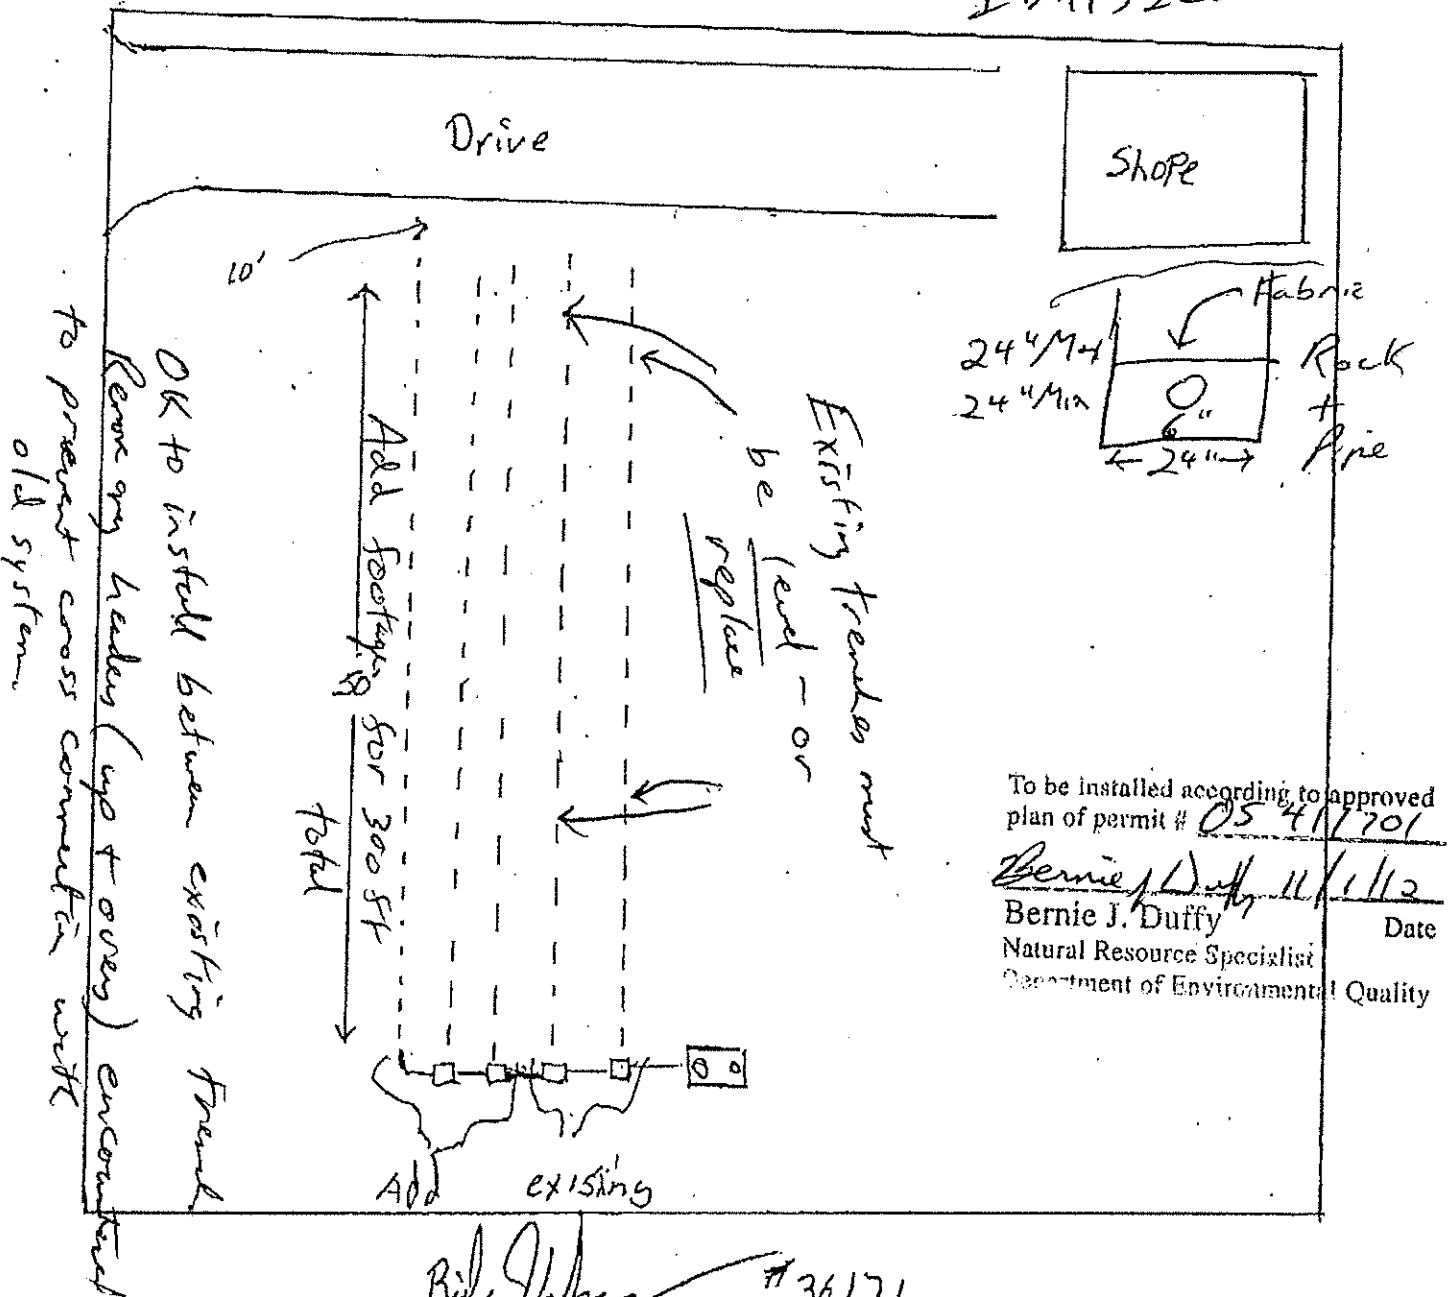 Drive
Shope
10'
Fabric
24" Max
Rock
24" Min
+
6"
Pipe
24"
Existing trenches must
be level - or
replace
Add footage for 300 ft
total
OK to install between existing trench
Remove any headers (up + overs) encountered
to prevent cross connection with
old system.
To be installed according to approved
plan of permit # OS 417701
Bernie J Duffy 11/1/12
Bernie J. Duffy Date
Natural Resource Specialist
Department of Environmental Quality
Add
existing
# 36171